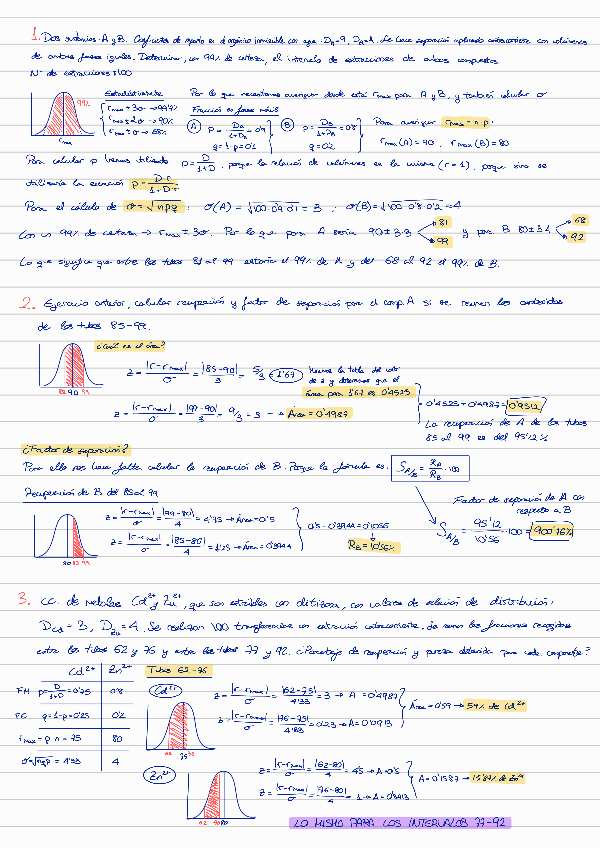 1. Dos sustancias A y B. Coeficientes de reparto en el orgánico inmiscible con agua: D_A=9, D_B=4. Se hace separación aplicando contracorriente con volúmenes
de ambas fases iguales. Determinar, con 99% de certeza, el intervalo de extracciones de ambos compuestos.
Nº de extracciones = 100
Estadísticamente
r_max ± 3σ → 99%
r_max ± 2σ → 90%
r_max ± σ → 68%
99%
r_max
Por lo que necesitamos averiguar donde está r_max para A y B, y también calcular σ
Fracción en fase móvil
A P = D_A/(1+D_A) = 0'9
q = 1-p = 0'1
B P = D_B/(1+D_B) = 0'8
q = 0'2
Para averiguar r_max = n·p:
r_max (A) = 90, r_max (B) = 80
Para calcular p hemos utilizado P = D/(1+D), porque la relación de volúmenes es la misma (r=1), porque sino se
utilizaría la ecuación P = D·r/(1+D·r)
Para el cálculo de σ = √npq: σ(A) = √100·0'9·0'1 = 3 ; σ(B) = √100·0'8·0'2 = 4
Con un 99% de certeza → r_max ± 3σ. Por lo que para A sería 90±3·3 81 99 y para B 80±3·4 68 92
Lo que significa que entre los tubos 81 al 99 estaría el 99% de A y del 68 al 92 el 99% de B.
2. Ejercicio anterior, calcular recuperación y factor de separación para el comp. A si se reunen los contenidos
de los tubos 85-99.
¿Cuál es el área?
85 90 99
z = |r-r_max|/σ = |85-90|/3 = 5/3 = 1'67
Hacemos la tabla del valor
de z y determino que el
área para 1'67 es 0'4525
z = |r-r_max|/σ = |99-90|/3 = 9/3 = 3 → Área = 0'4987
0'4525 + 0'4987 = 0'9512
La recuperación de A de los tubos
85 al 99 es del 95'12%
¿Factor de separación?
Para ello nos hace falta calcular la recuperación de B. Porque la fórmula es: S_A/B = R_A/R_B · 100
Recuperación de B del 85 al 99
80 85 99
z = |r-r_max|/σ = |99-80|/4 = 4'75 → Área = 0'5
z = |r-r_max|/σ = |85-80|/4 = 1'25 → Área = 0'3944
0'5 - 0'3944 = 0'1056
R_B = 10'56%
Factor de separación de A con
respecto a B
S_A/B = 95'12/10'56 · 100 = 900'76%
3. CC. de metales Cd²⁺ y Zn²⁺, que son extraíbles con ditizona, con valores de relación de distribución:
D_Cd = 3, D_Zn = 4. Se realizan 100 transferencias en extracción contracorriente, se reunen las fracciones recogidas
entre los tubos 62 y 76 y entre los tubos 77 y 92. ¿Porcentaje de recuperación y pureza obtenida para cada compuesto?
Cd²⁺ Zn²⁺
FM p = D/(1+D) = 0'75 0'8
FE q = 1-p = 0'25 0'2
r_max = p·n = 75 80
σ = √npq = 4'33 4
Tubos 62-76
Cd²⁺
z = |r-r_max|/σ = |62-75|/4'33 = 3 → A = 0'4987
z = |r-r_max|/σ = |76-75|/4'33 = 0'23 → A = 0'0913
Área = 0'59 → 59% de Cd²⁺
Zn²⁺
62 76 80
z = |r-r_max|/σ = |62-80|/4 = 4'5 → A = 0'5
z = |r-r_max|/σ = |76-80|/4 = 1 → A = 0'3413
A = 0'1587 → 15'87% de Zn²⁺
LO MISMO PARA LOS INTERVALOS 77-92